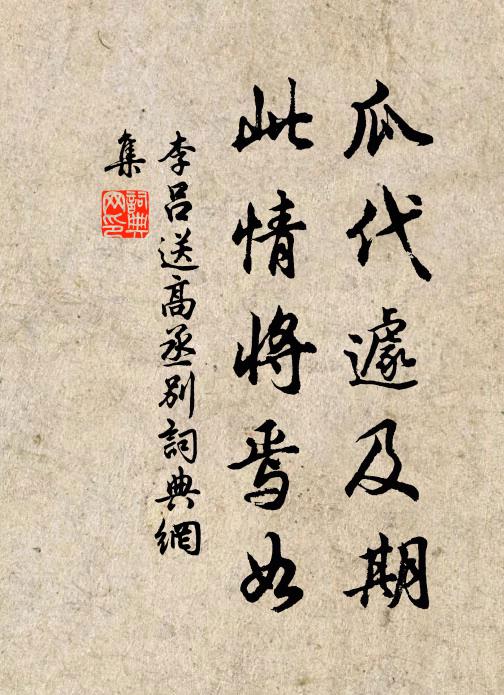 瓜代遽及期
此情将焉如
李吕送高丞别詞典網
集
詞典
网印